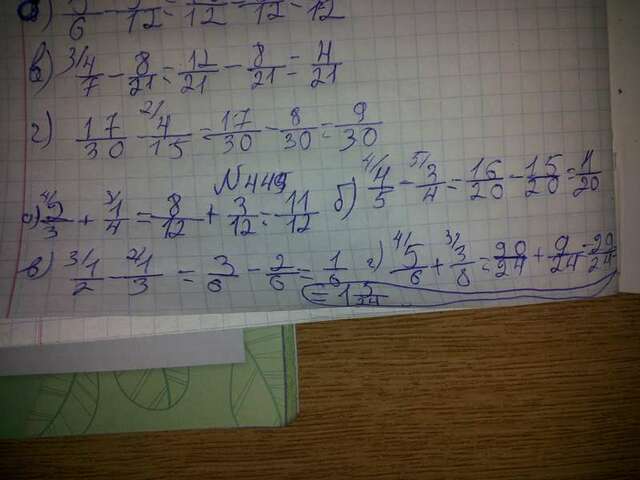 а) 5/6 - /12 = /12 - /12 = /12
в) 3/ 4/7 - 8/21 = 12/21 - 8/21 = 4/21
г) 17/30 - 2/ 4/15 = 17/30 - 8/30 = 9/30
N 449
а) 4/ 2/3 + 3/ 1/4 = 8/12 + 3/12 = 11/12 б) 4/ 4/5 - 5/ 3/4 = 16/20 - 15/20 = 1/20
в) 3/ 1/2 - 2/ 1/3 = 3/6 - 2/6 = 1/6 г) 4/ 5/6 + 3/ 3/8 = 20/24 + 9/24 = 29/24
= 1 5/24